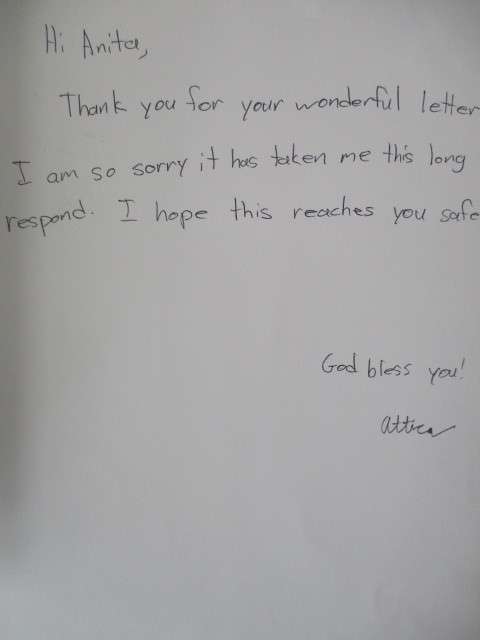 Hi Anita,
Thank you for your wonderful letter
I am so sorry it has taken me this long
respond. I hope this reaches you safe
God bless you!
Attica